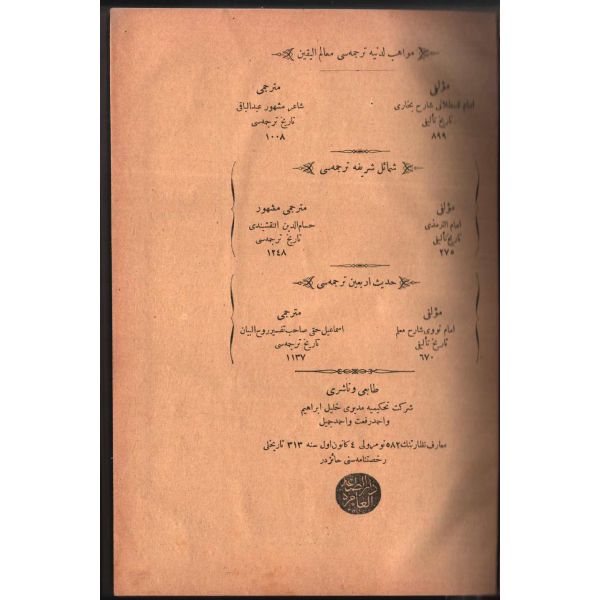 مواهب لدنیه ترجمه‌سی معالم الیقین
مؤلفی
امام قسطلانی شارح بخاری
تاریخ تألیفی
٨٩٩
مترجمی
شاعر مشهور عبدالباقی
تاریخ ترجمه‌سی
١٠٠٨
شمائل شریفه ترجمه‌سی
مؤلفی
امام الترمذی
تاریخ تألیفی
٢٧٥
مترجمی مشهور
حسام‌الدین النقشبندی
تاریخ ترجمه‌سی
١٢٤٨
حدیث اربعین ترجمه‌سی
مؤلفی
امام نووی شارح
تاریخ تألیفی
٦٧٠
مترجمی
اسماعیل حقی صاحب تفسیر روح البیان
تاریخ ترجمه‌سی
١١٣٧
طابعی و ناشری
شرکت مدیری خلیل ابراهیم
واحمد رفعت واحمد جمیل
معارف نظارتنك ٥٨٢ نومرولی ٤ کانون اول سنه ٣١٣ تاریخلی
رخصتنامه‌سنی حائزدر